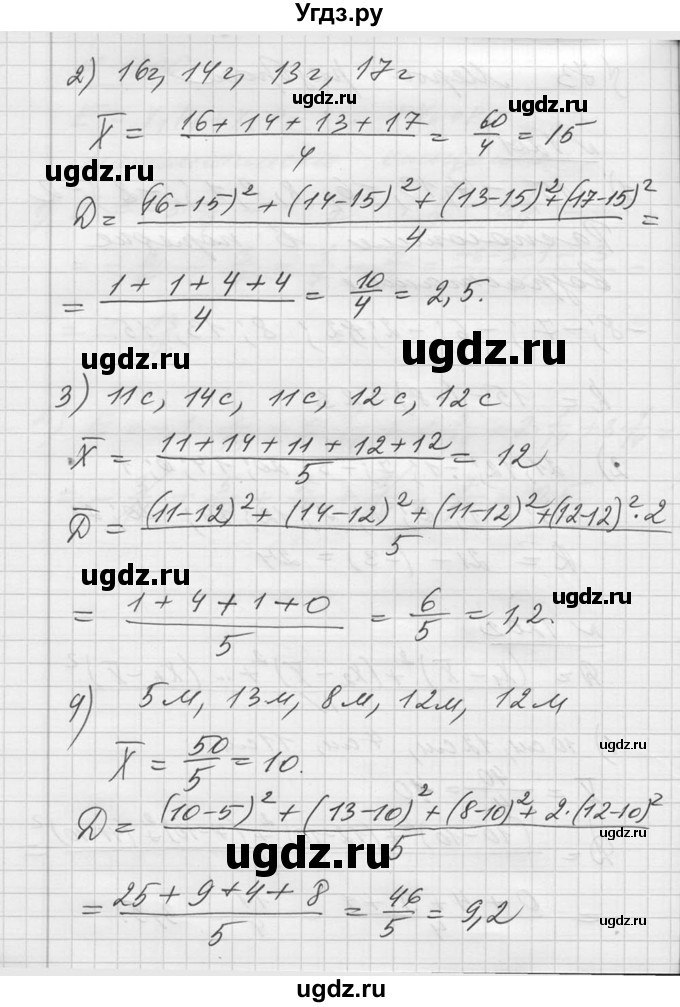 Угдз.ру
2) 16г, 14г, 13г, 17г
ugdz.ru
ugdz.ru
X̄ = (16+14+13+17)/4 = 60/4 = 15
ugdz.ru
D = ((16-15)²+(14-15)²+(13-15)²+(17-15)²)/4 =
= (1+1+4+4)/4 = 10/4 = 2,5.
ugdz.ru
ugdz.ru
3) 11с, 14с, 11с, 12с, 12с
X̄ = (11+14+11+12+12)/5 = 12
D̄ = ((11-12)²+(14-12)²+(11-12)²+(12-12)²·2)/5
ugdz.ru
ugdz.ru
= (1+4+1+0)/5 = 6/5 = 1,2.
4) 5м, 13м, 8м, 12м, 12м
X̄ = 50/5 = 10.
D = ((10-5)²+(13-10)²+(8-10)²+2·(12-10)²)/5
ugdz.ru
ugdz.ru
= (25+9+4+8)/5 = 46/5 = 9,2
ugdz.ru
ugdz.ru